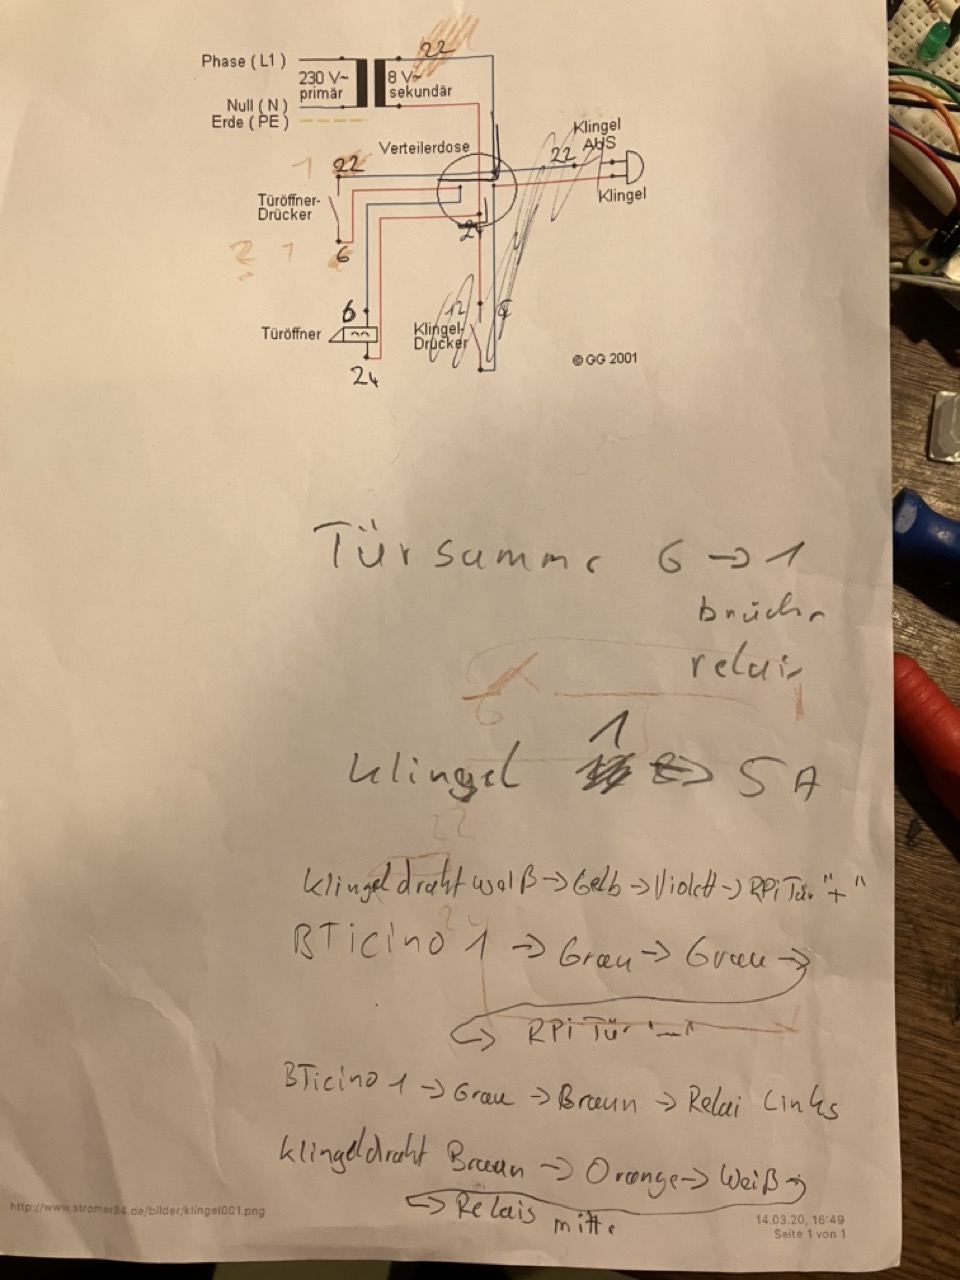 22
Phase ( L1 )
230 V~
primär
8 V~
sekundär
Null ( N )
Erde ( PE )
Verteilerdose
Klingel
AUS
22
Klingel
1 22
Türöffner-
Drücker
2 1 6
24
6
12
Türöffner
Klingel-
Drücker
24
© GG 2001
Türsummer 6 → 1
brücken
relais
6
1
Klingel ↔ 5 A
22
Klingeldraht weiß → Gelb → Violett → RPi Tür "+"
BTicino 1 → Grau → Grau →
↪ RPi Tür "-"
BTicino 1 → Grau → Braun → Relai Links
Klingeldraht Braun → Orange → Weiß →
↪ Relais mitte
http://www.stromer84.de/bilder/klingel001.png
14.03.20, 16:49
Seite 1 von 1